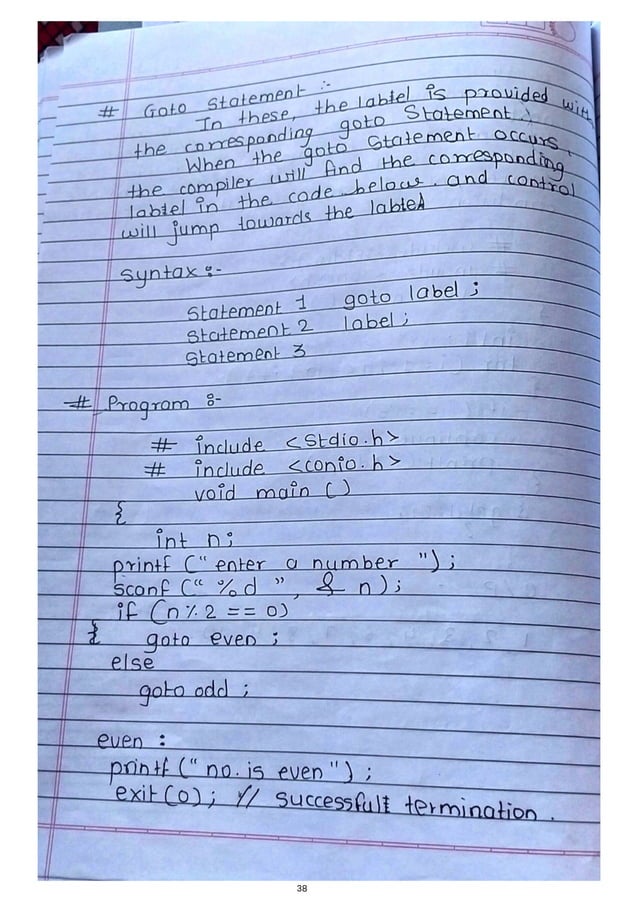 # Goto Statement :-
In these, the labtel is provided with
the corresponding goto Statement.
When the goto Statement occurs,
the compiler will find the corresponding
labtel in the code below. and control
will jump towards the labtel
Syntax :-
Statement 1 goto label ;
Statement 2 label ;
Statement 3
# Program :-
# include <Stdio.h>
# include <conio.h>
void main ()
{
int n ;
printf (" enter a number ") ;
sconf (" %d ", & n) ;
if (n % 2 == 0)
{ goto even ;
else
goto odd ;
even :
printf (" no. is even ") ;
exit (0) ; // successfull termination .
38